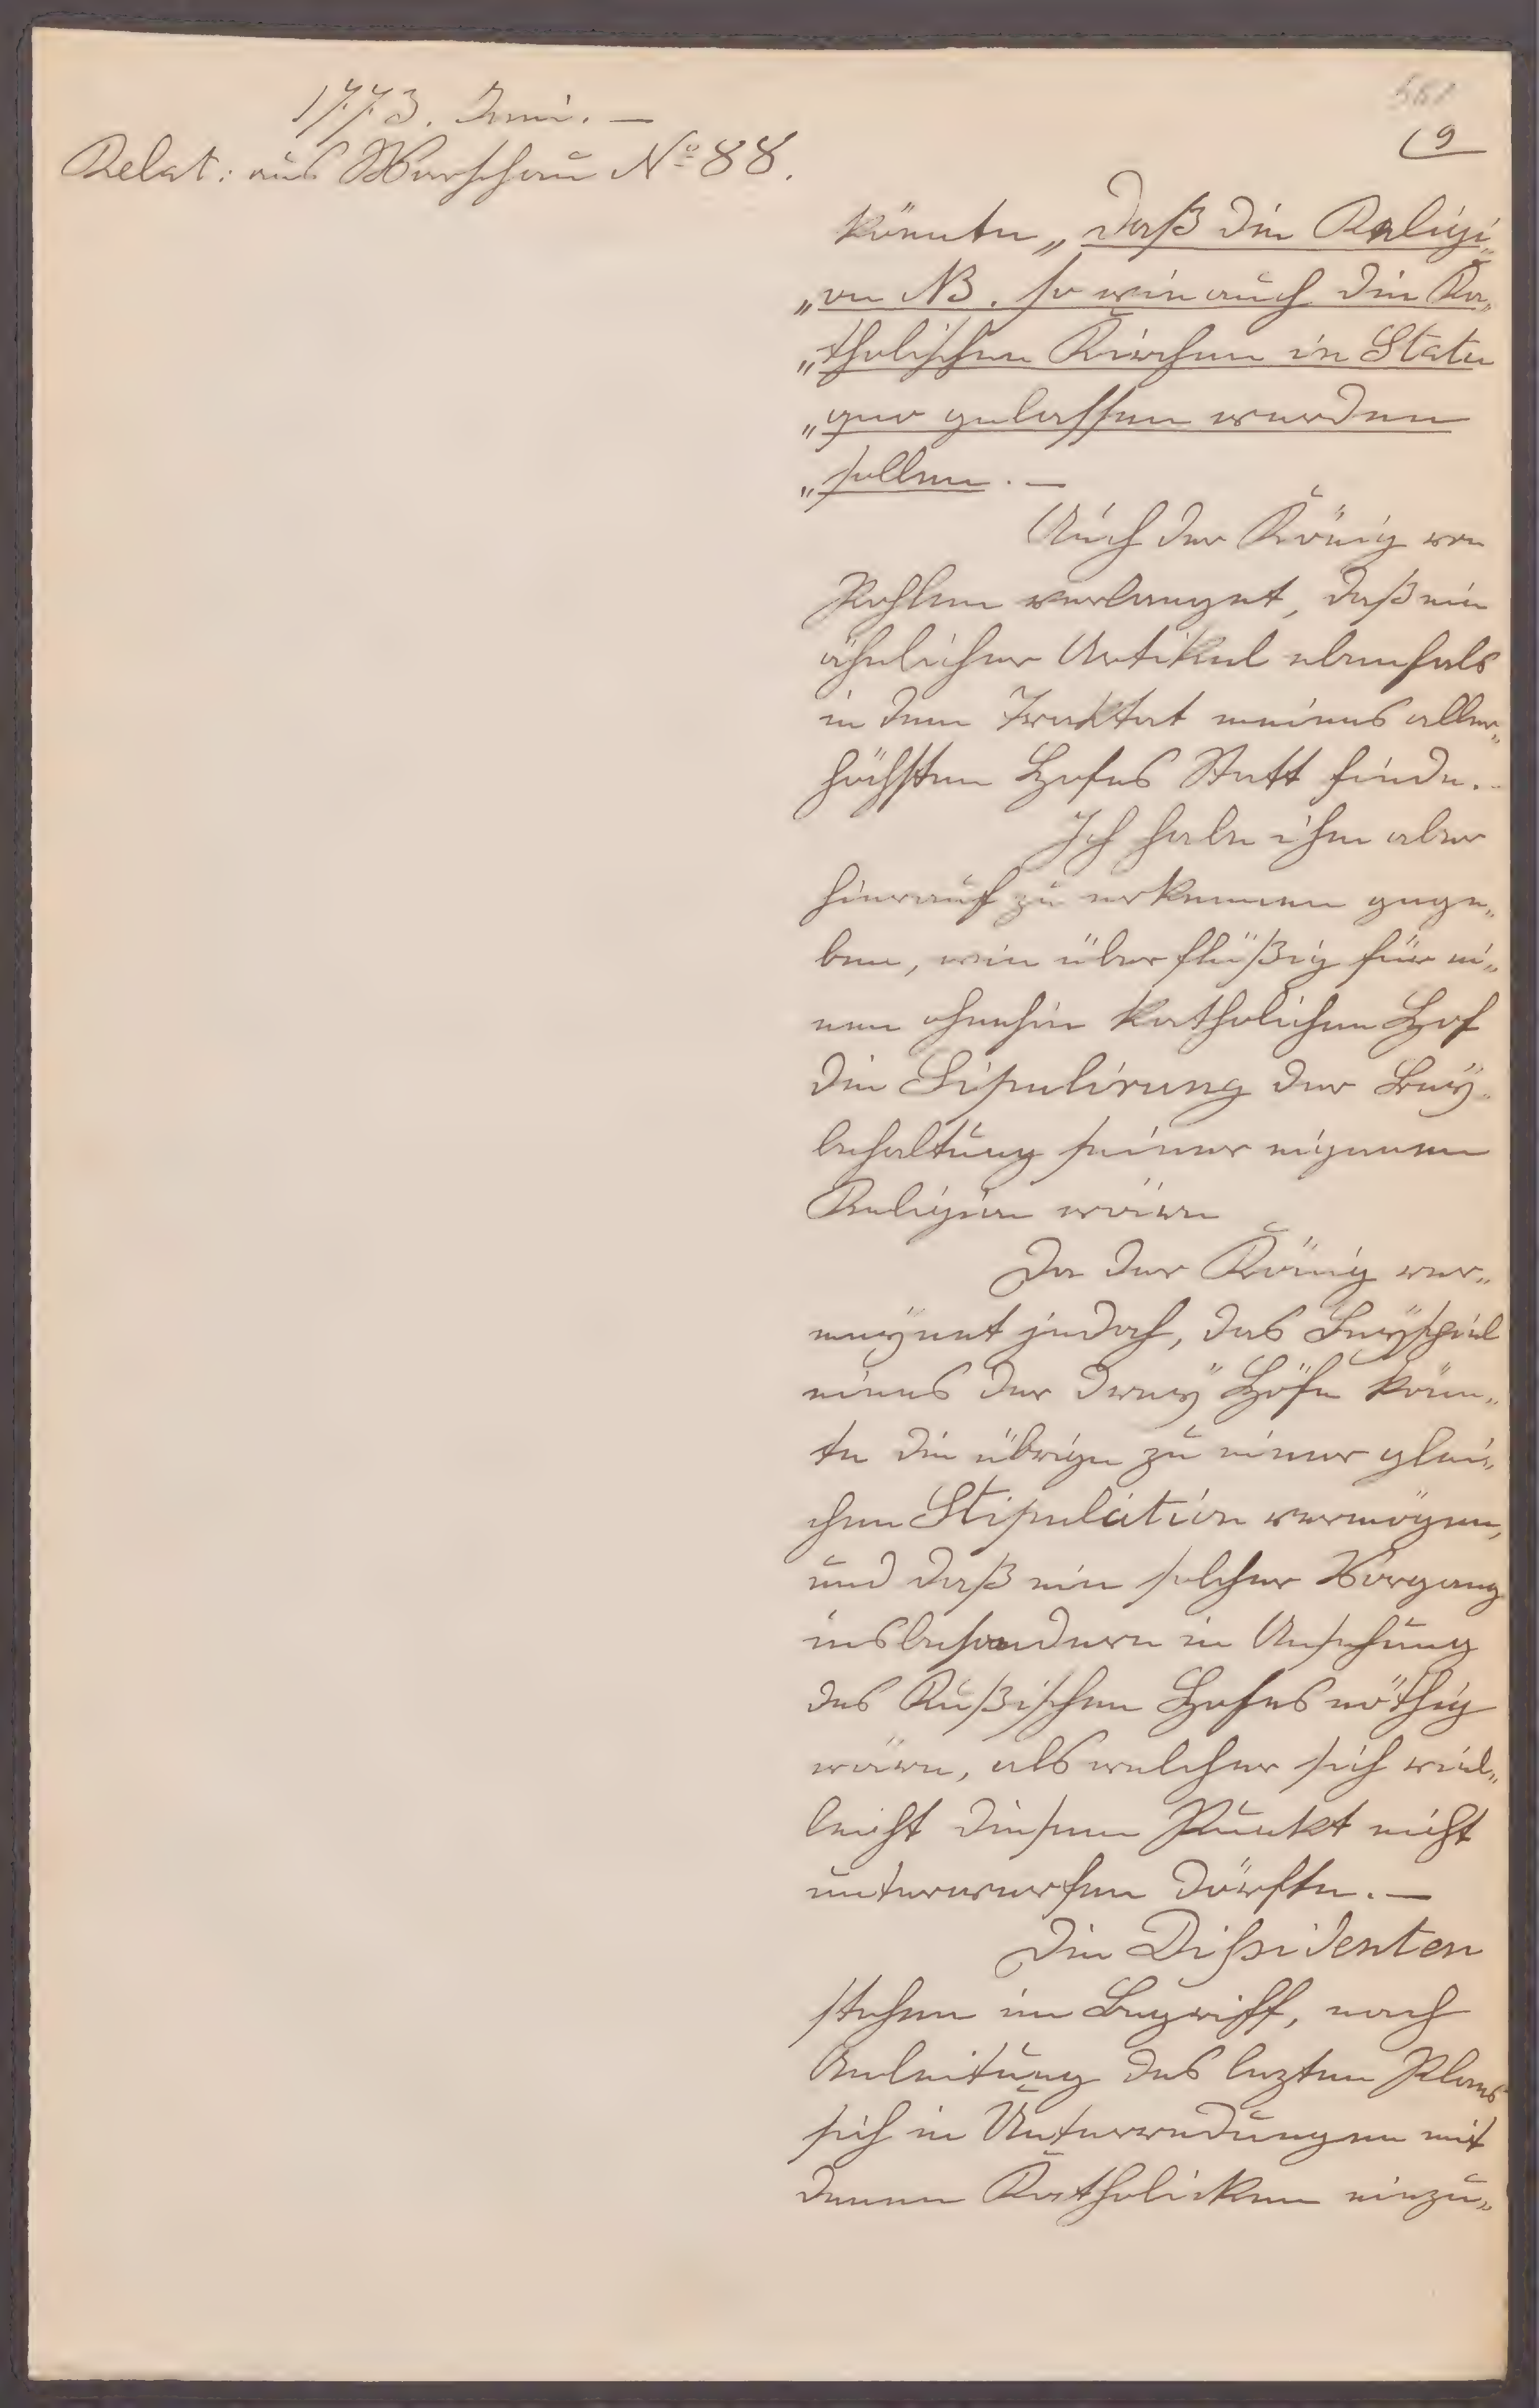 1773. Juni. —
Relat: aus Warschau No 88.
9
könnte „daß die Religi„
„on NB. so wie auch die Ka„
„tholischen Kirchen in Statu
„quo gelassen werden
„sollen. —
Auch der König von
Pohlen verlanget, daß ein
ähnlicher Artikel ebenfals
in dem Traktat meines aller„
höchsten Hofes Statt finde. -
Ich habe ihm aber
hierauf zu erkennen gege„
ben, wie überflüßig für ei„
nen ohnehin katholichen Hof
die Sipulirung der Bey„
behaltung seiner eigenen
Religion wäre
Da der König ver„
meÿnet jedoch, das Beÿspiel
eines der dreÿ Höfe könn„
te die übrige zu einer glei„
chen Stipulation vermögen,
und daß ein solcher Vorgang
insbesondere in Ansehung
des Rußischen Hofes nöthig
wäre, als welcher sich viel„
leicht diesem Punkt nicht
unterwerfen dörfte. —
Die Dißidenten
stehen im Begriff, nach
Anleitung des lezten Plans
sich in Unterredungen mit
denen Katholicken einzu„